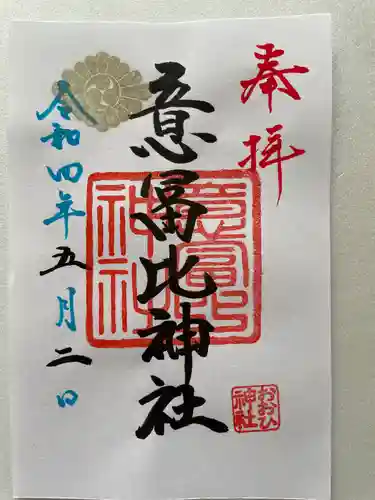 奉拝
意冨比神社
意冨比
神社
おおひ
神社
令和四年五月二日